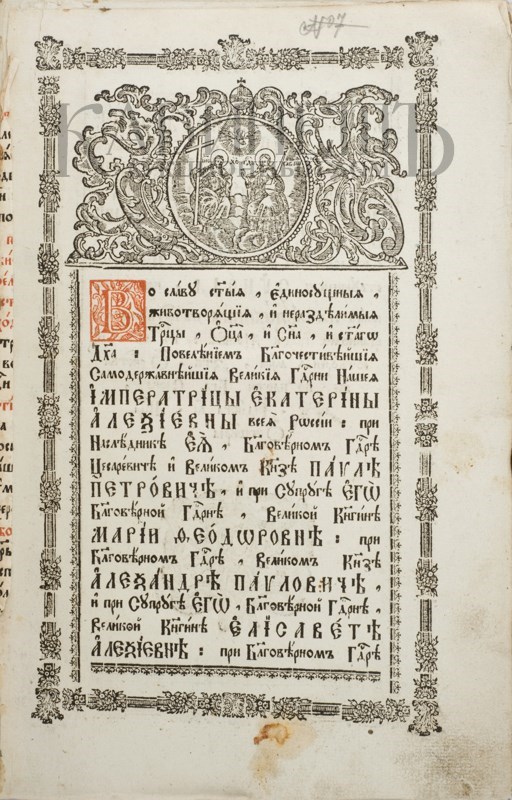 №07
Во славу ст҃ыѧ, єдиносꙋщныѧ,
животворѧщїѧ, и нераздѣлимыѧ
Трⷪ҇цы, Ѻц҃а, и Сн҃а, и ст҃агѡ
Дх҃а: Повелѣнїемъ Бл҃гочестивѣйшїѧ
Самодержавнѣйшїѧ Великїѧ Гдⷭ҇рни Нашеѧ
ІМПЕРАТРІЦЫ ЄКАТЕРІНЫ
АЛЕѮІЕВНЫ всеѧ Рѡссїи: при
Наслѣдникѣ ЄѦ, Бл҃говѣрномъ Гдⷭ҇рѣ
Цесаревичѣ и Великомъ Кнз҃ѣ ПАѴЛѢ
ПЕТРОВИЧѢ, и при Сꙋпрꙋгѣ ЄГѠ
Бл҃говѣрной Гдⷭ҇рнѣ, Великой Кнг҃инѣ
МАРІИ ѲЕОДѠРОВНѢ: при
Бл҃говѣрномъ Гдⷭ҇рѣ, Великомъ Кнз҃ѣ
АЛЕѮАНДРѢ ПАѴЛОВИЧѢ,
и при Сꙋпрꙋгѣ ЄГѠ, Бл҃говѣрной Гдⷭ҇рнѣ,
Великой Кнг҃инѣ ЄЛІСАВЕТѢ
АЛЕѮІЕВНѢ: при Бл҃говѣрномъ Гдⷭ҇рѣ